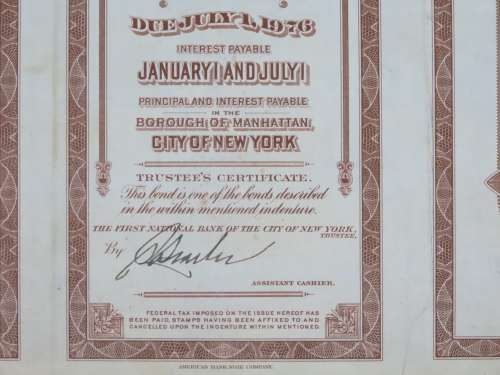 DUE JULY 1, 1976
INTEREST PAYABLE
JANUARY 1 AND JULY 1
PRINCIPAL AND INTEREST PAYABLE
IN THE
BOROUGH OF MANHATTAN,
CITY OF NEW YORK
TRUSTEE'S CERTIFICATE.
This bond is one of the bonds described
in the within mentioned indenture.
THE FIRST NATIONAL BANK OF THE CITY OF NEW YORK,
TRUSTEE,
By
ASSISTANT CASHIER.
FEDERAL TAX IMPOSED ON THE ISSUE HEREOF HAS
BEEN PAID, STAMPS HAVING BEEN AFFIXED TO AND
CANCELLED UPON THE INDENTURE WITHIN MENTIONED
AMERICAN BANK NOTE COMPANY.